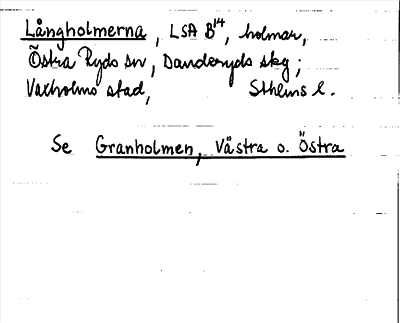 Långholmerna, LSA B14, holmar,
Östra Ryds sn, Danderyds skg;
Vaxholms stad, Sthlms l.
Se Granholmen, Västra o. Östra